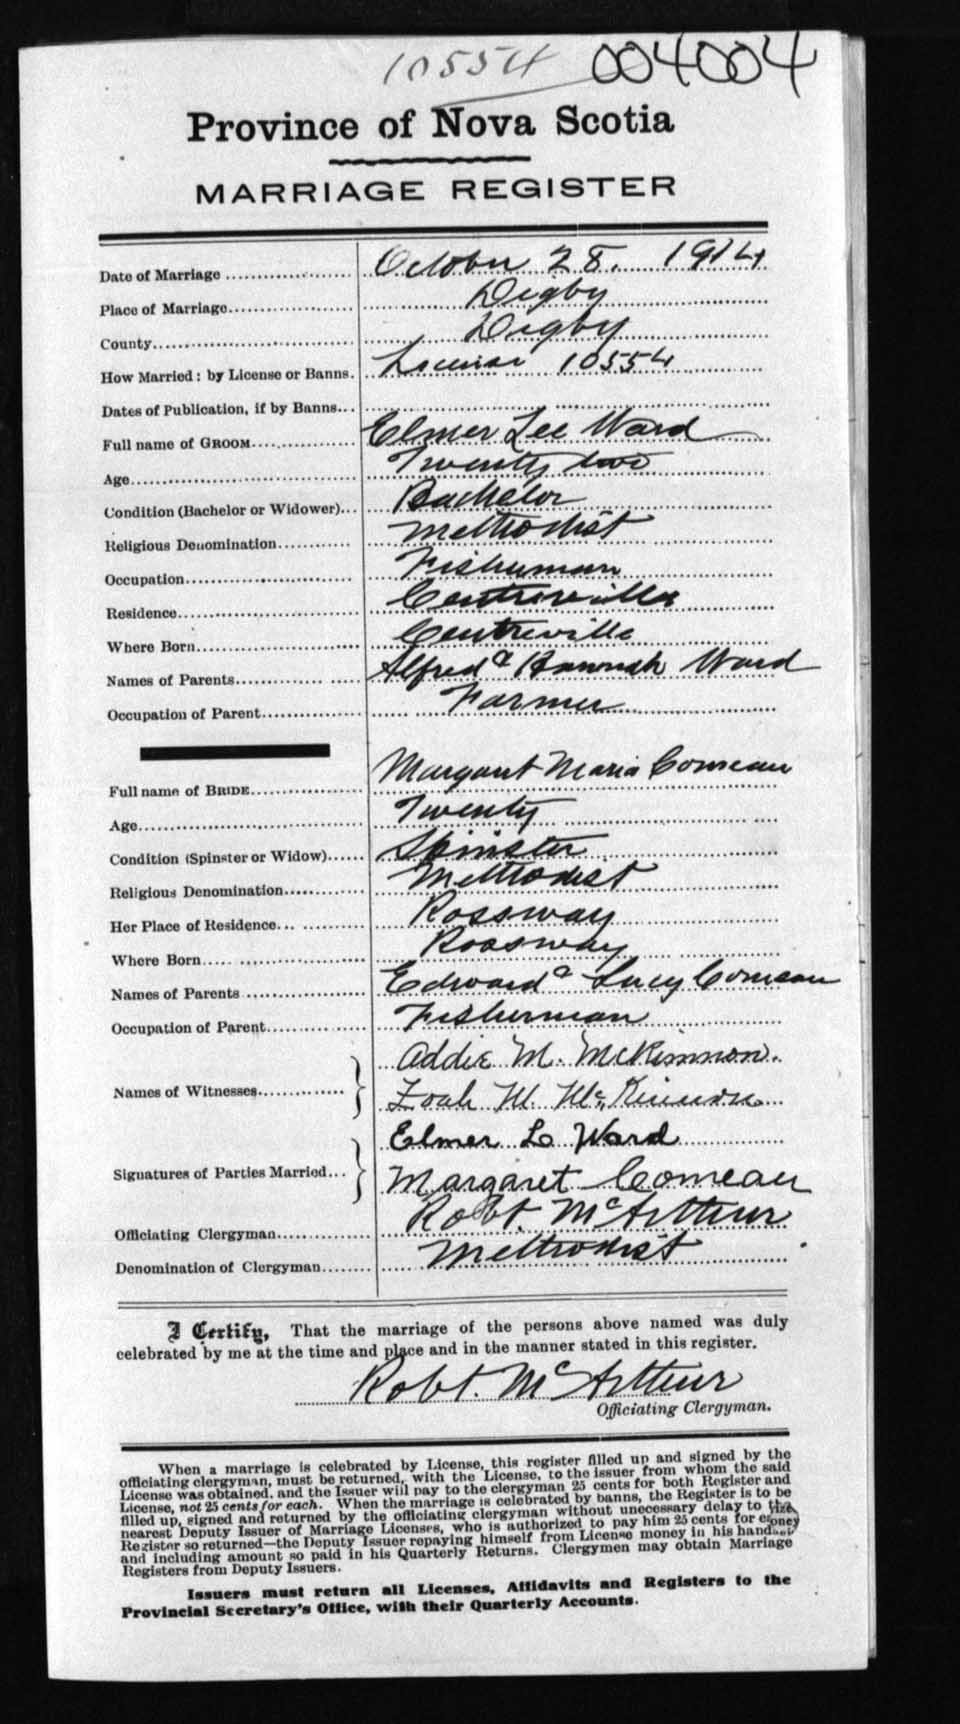 10554 004004
Province of Nova Scotia
MARRIAGE REGISTER
Date of Marriage October 28. 1914
Place of Marriage Digby
County Digby
How Married: by License or Banns. License 10554
Dates of Publication, if by Banns
Full name of GROOM Elmer Lee Ward
Age Twenty two
Condition (Bachelor or Widower) Bachelor
Religious Denomination Methodist
Occupation Fisherman
Residence Centreville
Where Born Centreville
Names of Parents Alfred & Hannah Ward
Occupation of Parent Farmer
Full name of BRIDE Margaret Maria Comeau
Age Twenty
Condition (Spinster or Widow) Spinster
Religious Denomination Methodist
Her Place of Residence Rossway
Where Born Rossway
Names of Parents Edward & Lucy Comeau
Occupation of Parent Fisherman
Addie M. McKinnon.
Names of Witnesses M. McKinnon
Elmer L Ward
Signatures of Parties Married Margaret Comeau
Officiating Clergyman Robt. McArthur
Denomination of Clergyman Methodist
I Certify, That the marriage of the persons above named was duly
celebrated by me at the time and place and in the manner stated in this register.
Robt. McArthur
Officiating Clergyman.
When a marriage is celebrated by License, this register filled up and signed by the
officiating clergyman, must be returned, with the License, to the issuer from whom the said
License was obtained, and the Issuer will pay to the clergyman 25 cents for both Register and
License, not 25 cents for each. When the marriage is celebrated by banns, the Register is to be
filled up, signed and returned by the officiating clergyman without unecessary delay to the
nearest Deputy Issuer of Marriage Licenses, who is authorized to pay him 25 cents for
Register so returned—the Deputy Issuer repaying himself from License money in his hand
and including amount so paid in his Quarterly Returns. Clergymen may obtain Marriage
Registers from Deputy Issuers.
Issuers must return all Licenses, Affidavits and Registers to the
Provincial Secretary's Office, with their Quarterly Accounts.